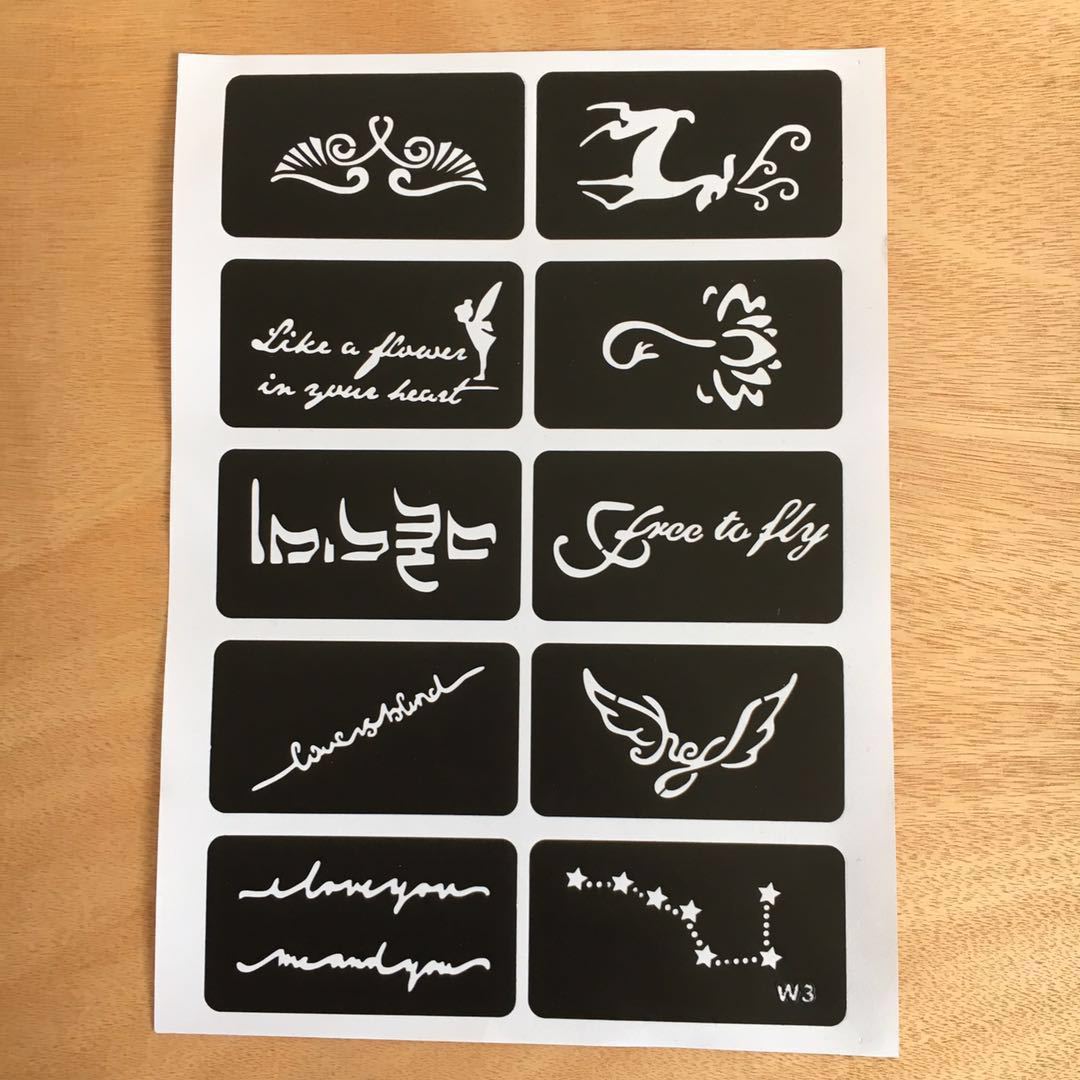 Like a flower
in your heart
free to fly
love is blind
i love you
me and you
W3